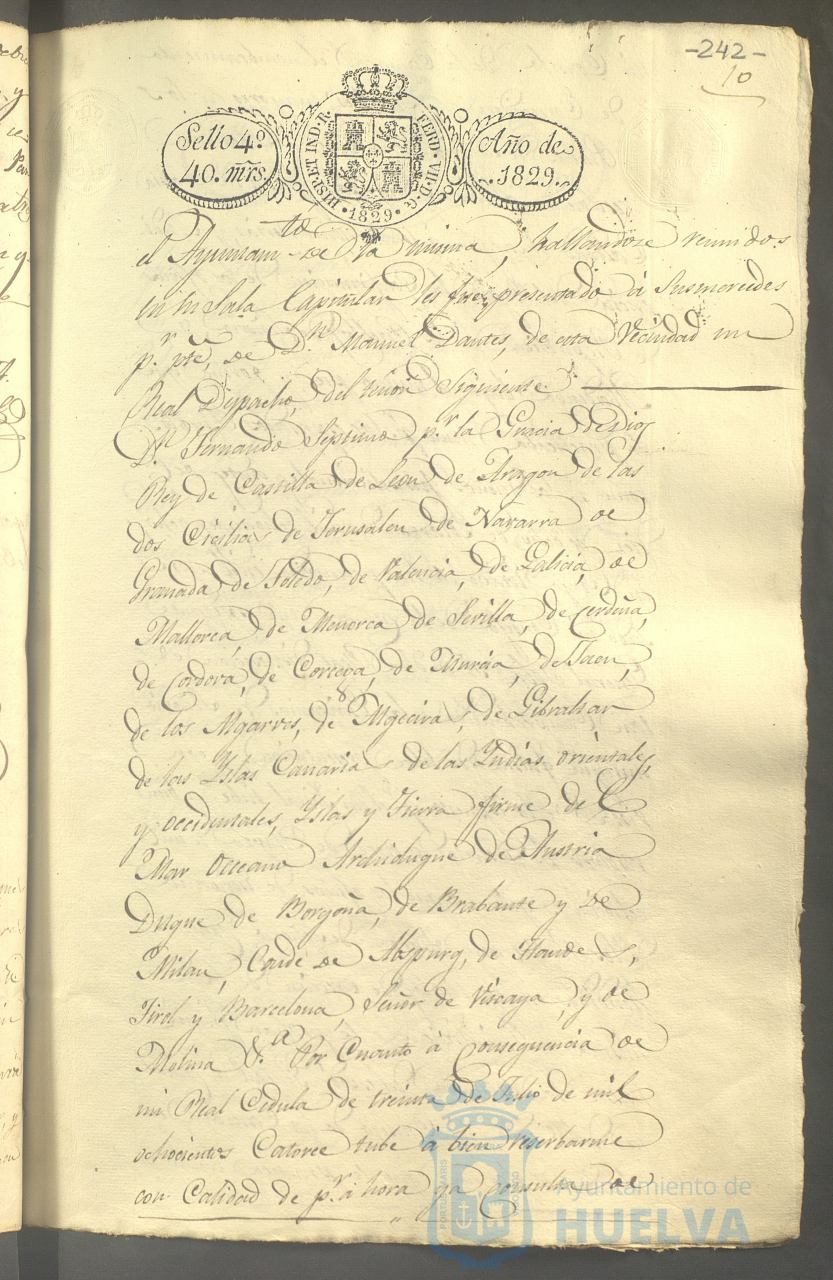 -242-
10
Sello 4º
40. mrs.
HISP. ET IND. R.
FERD. VII. D. G.
1829
Año de
1829.
el Ayuntamto de la misma, hallandose reunidos
en su Sala Capitular les fue presentado á Susmercedes
pr. pte, de Dn. Manuel Dantes, de esta Vecindad un
Real Dspacho, del tenor Siguiente
Dn. Fernando Septimo pr. la Gracia de Dios
Rey de Castilla de Leon de Aragon de las
dos Cicilias de Jerusalen de Navarra de
Granada de Toledo, de Valencia, de Galicia, de
Mallorca, de Menorca de Sevilla, de Cerdeña,
de Cordova, de Corcega, de Murcia, de Jaen,
de los Algarves, de Algeciras, de Gibraltar
de las Yslas Canarias de las Yndias orientales,
y occidentales, Yslas y Tierra firme del
Mar Occeano Archiduque de Austria
Duque de Borgoña, de Brabante y de
Milan, Conde de Abspurg, de Flandes,
Tirol y Barcelona, Señor de Viscaya, y de
Molina &.a Por Cuanto á Consequencia de
mi Real Cedula de treinta de Julio de mil
ochocientos Catorce tube á bien reserbarme
con Calidad de pr. a hora ya Consulta de
Ayuntamiento de
HUELVA